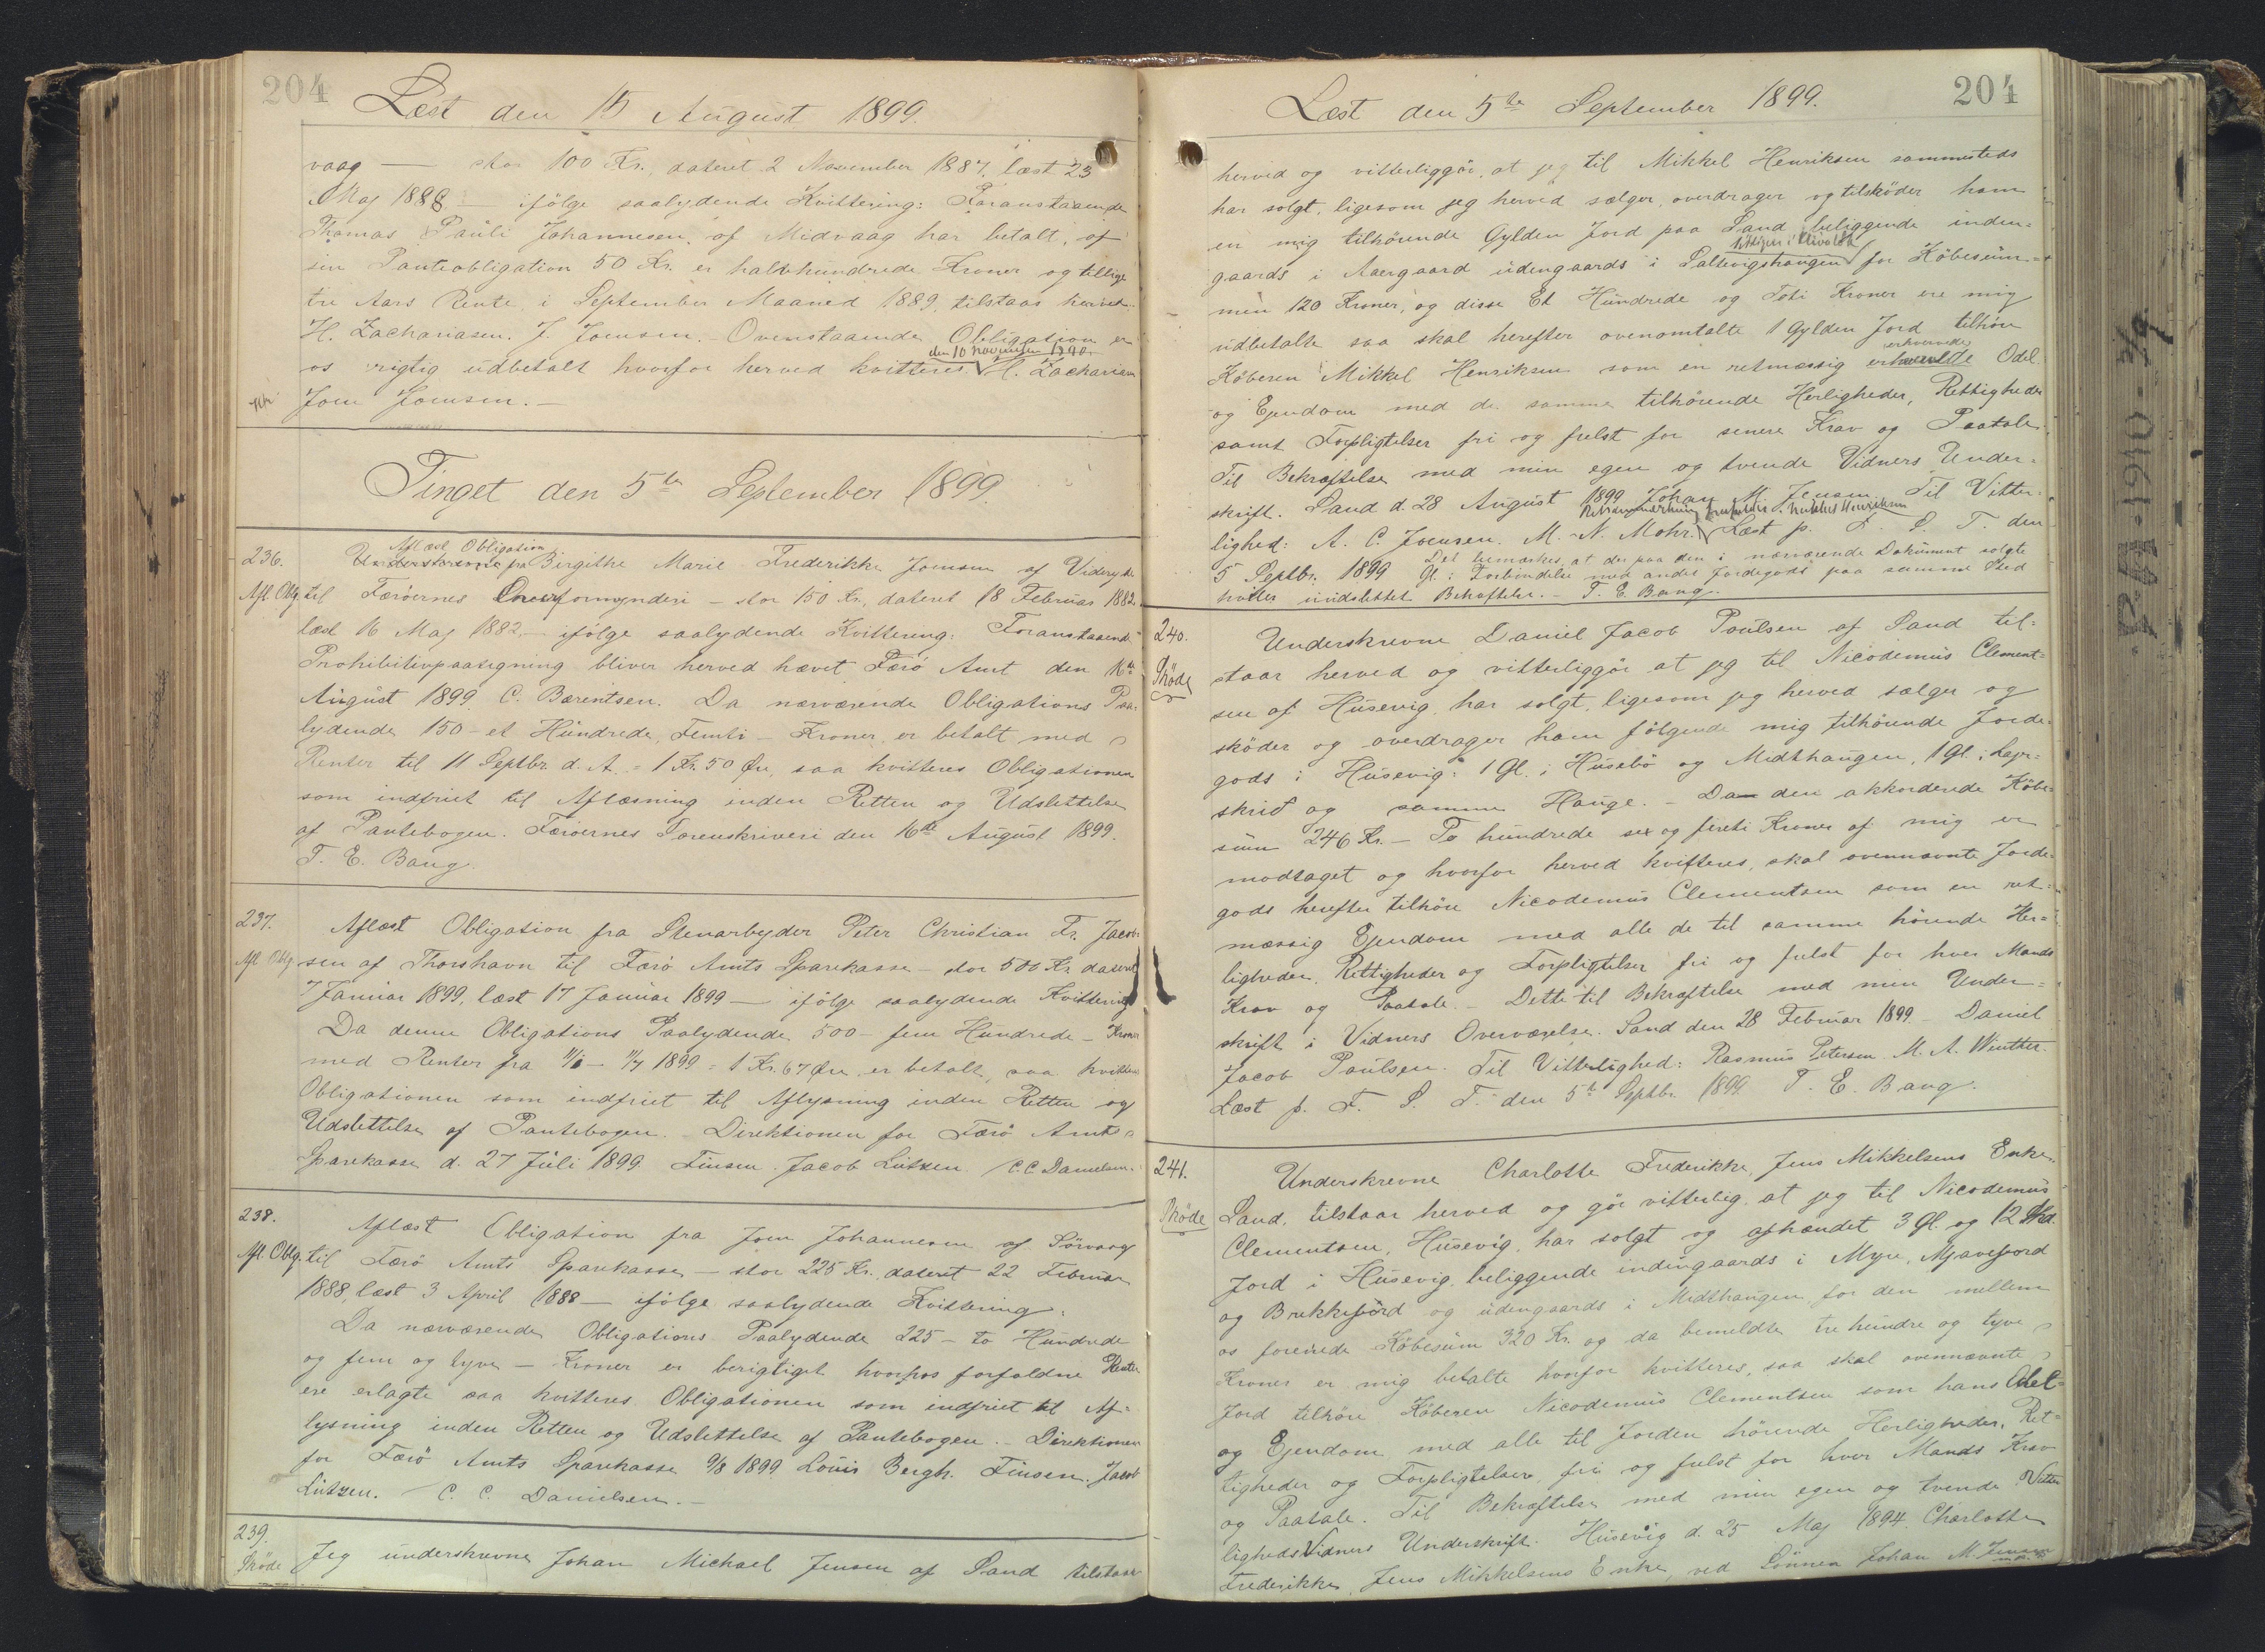 204
Læst den 15 August 1899.
vaag — stor 100 Kr., dateret 2 November 1887, læst 23
Maj 1888 — ifölge saalydende Kvittering: Foranstaaende
Thomas Pauli Johannesen, af Midvaag har betalt, af
sin Panteobligation 50 Kr. er halvhundrede Kroner og tillige
tre Aars Rente, i September Maaned 1889, tilstaas herved.
H. Zachariasen. J. Joensen. - Ovenstaaende Obligation er
den 10 November 1890.
os rigtig udbetalt hvorfor herved kvitteres. H. Zachariasen
Joen Joensen. —
Tinget den 5te September 1899.
Aflæst Obligation
236. fra Birgithe Marie Frederikke Joensen af Viderejde
Afl. Oblg. til Færöernes Overformynderi - stor 150 Kr., dateret 18 Februar 1882
læst 16 Maj 1882 - ifölge saalydende Kvittering: Foranstaaende
Prohibitivpaategning bliver herved hævet. Færö Amt den 16de
August 1899. C. Bærentsen. Da nærværende Obligations Paa-
lydende 150 - et Hundrede, Femti - Kroner er betalt med
Renter til 11 Septbr. d. A. = 1 Kr. 50 Øre, saa kvitteres Obligationen
som indfriet til Aflæsning inden Retten og Udslettelse
af Pantebogen. Færöernes Sorenskriveri den 16de August 1899.
T. E. Bang.
237. Aflæst Obligation fra Stenarbejder Peter Christian Fr. Jacob-
Afl. Oblg. sen af Thorshavn til Færö Amts Sparekasse - stor 500 Kr. dateret
7 Januar 1899, læst 17 Januar 1899 — ifölge saalydende Kvittering
Da denne Obligations Paalydende 500 - fem Hundrede - Kroner
med Renter fra 11/6 - 11/7 1899 = 1 Kr. 67 Øre er betalt, saa kvitteres
Obligationen som indfriet til Aflysning inden Retten og
Udslettelse af Pantebogen. - Direktionen for Færö Amts
Sparekasse d. 27 Juli 1899. Finsen. Jacob Lützen. C. C. Danielsen.
238. Aflæst Obligation fra Joen Johannesen af Sörvaag
Afl. Oblg. til Færö Amts Sparekasse - stor 225 Kr., dateret 22 Februar
1888, læst 3 April 1888 - ifölge saalydende Kvittering:
Da nærværende Obligations Paalydende 225 - to Hundrede
og fem og tyve - Kroner er berigtiget hvorhos forfaldne Renter
ere erlagte saa kvitteres Obligationen som indfriet til Af-
lysning inden Retten og Udslettelse af Pantebogen. - Direktionen
for Færö Amts Sparekasse 9/8 1899. Louis Bergh. Finsen. Jacob
Lützen. C. C. Danielsen. —
239.
Sköde Jeg underskrevne Johan Michael Jensen af Sand tilstaar
204
Læst den 5te September 1899.
herved og vitterliggör, at jeg til Mikkel Henriksen sammesteds
har solgt, ligesom jeg herved sælger, overdrager og tilsköder ham
en mig tilhörende Gylden Jord paa Sand, beliggende inden-
gaards i Aaergaard udengaards i Saltevigshaugen for Köbesum-
men 120 Kroner, og disse Et Hundrede og Toti Kroner ere mig
udbetalte saa skal herefter ovenomtalte 1 Gylden Jord tilhöre
erhvervede
Köberen Mikkel Henriksen som en retmæssig Odel
og Ejendom med de samme tilhörende Herligheder, Rettigheder
samt Forpligtelser fri og frelst for senere Krav og Paatale.
Til Bekræftelse med min egen og tvende Vidners Under-
skrift. Sand d. 28 August 1899 Johan M. Jensen Til Vitter-
lighed: A. C. Joensen. M. N. Mohr. Læst p. F. S. T. den
5 Septbr. 1899 Det bemærkes, at der paa den i nærværende Dokument solgte
Gl. i Forbindelse med andet Jordegods paa samme Sted
hviler uudslettet Behæftelse. - T. E. Bang.
240. Underskrevne Daniel Jacob Poulsen af Sand til-
Sköde staar herved og vitterliggör at jeg til Nicodemus Clement-
sen af Husevig, har solgt, ligesom jeg herved sælger og
sköder og overdrager ham fölgende mig tilhörende Jorde-
gods i Husevig: 1 Gl. i Husebö og Midthaugen, 1 Gl. i
skrid og samme Hauge. - Da den akkorderede Köbe-
sum 246 Kr. - To hundrede sex og fireti Kroner af mig er
modtaget og hvorfor herved kvitteres, skal ovennævnte Jorde-
gods herefter tilhöre Nicodemus Clementsen som en ret-
mæssig Ejendom med alle de til samme hörende Her-
ligheder, Rettigheder og Forpligtelser fri og frelst for hver Mands
Krav og Paatale. - Dette til Bekræftelse med min Under-
skrift i Vidners Overværelse. Sand den 28 Februar 1899 - Daniel
Jacob Poulsen. Til Vitterlighed: Rasmus Petersen. M. A. Winther.
Læst p. F. S. T. den 5te Septbr. 1899 T. E. Bang.
241. Underskrevne Charlotte Frederikke, Jens Mikkelsens Enke,
Sköde Sand, tilstaar herved og gör vitterlig, at jeg til Nicodemus
Clementsen, Husevig, har solgt og afhændet 3 Gl. og 12 Skd.
Jord i Husevig, beliggende indengaards i Myre, Mjavejord
og Brekkejörd og udengaards i Midthaugen, for den mellem
os forenede Köbesum 320 Kr. og da bemeldte tre hundre og tyve
Kroner er mig betalte hvorfor kvitteres, saa skal ovennævnte
Jord tilhöre Köberen Nicodemus Clementsen som hans Odel-
og Ejendom med alle til Jorden hörende Herligheder, Ret-
tigheder og Forpligtelser, fri og frelst for hver Mands Krav
og Paatale. Til Bekræftelse med min egen og tvende Vitter-
ligheds Vidners Underskrift. Husevig d. 25 Maj 1894. Charlotte
Frederikke, Jens Mikkelsens Enke, ved Sönnen Johan M. Jensen